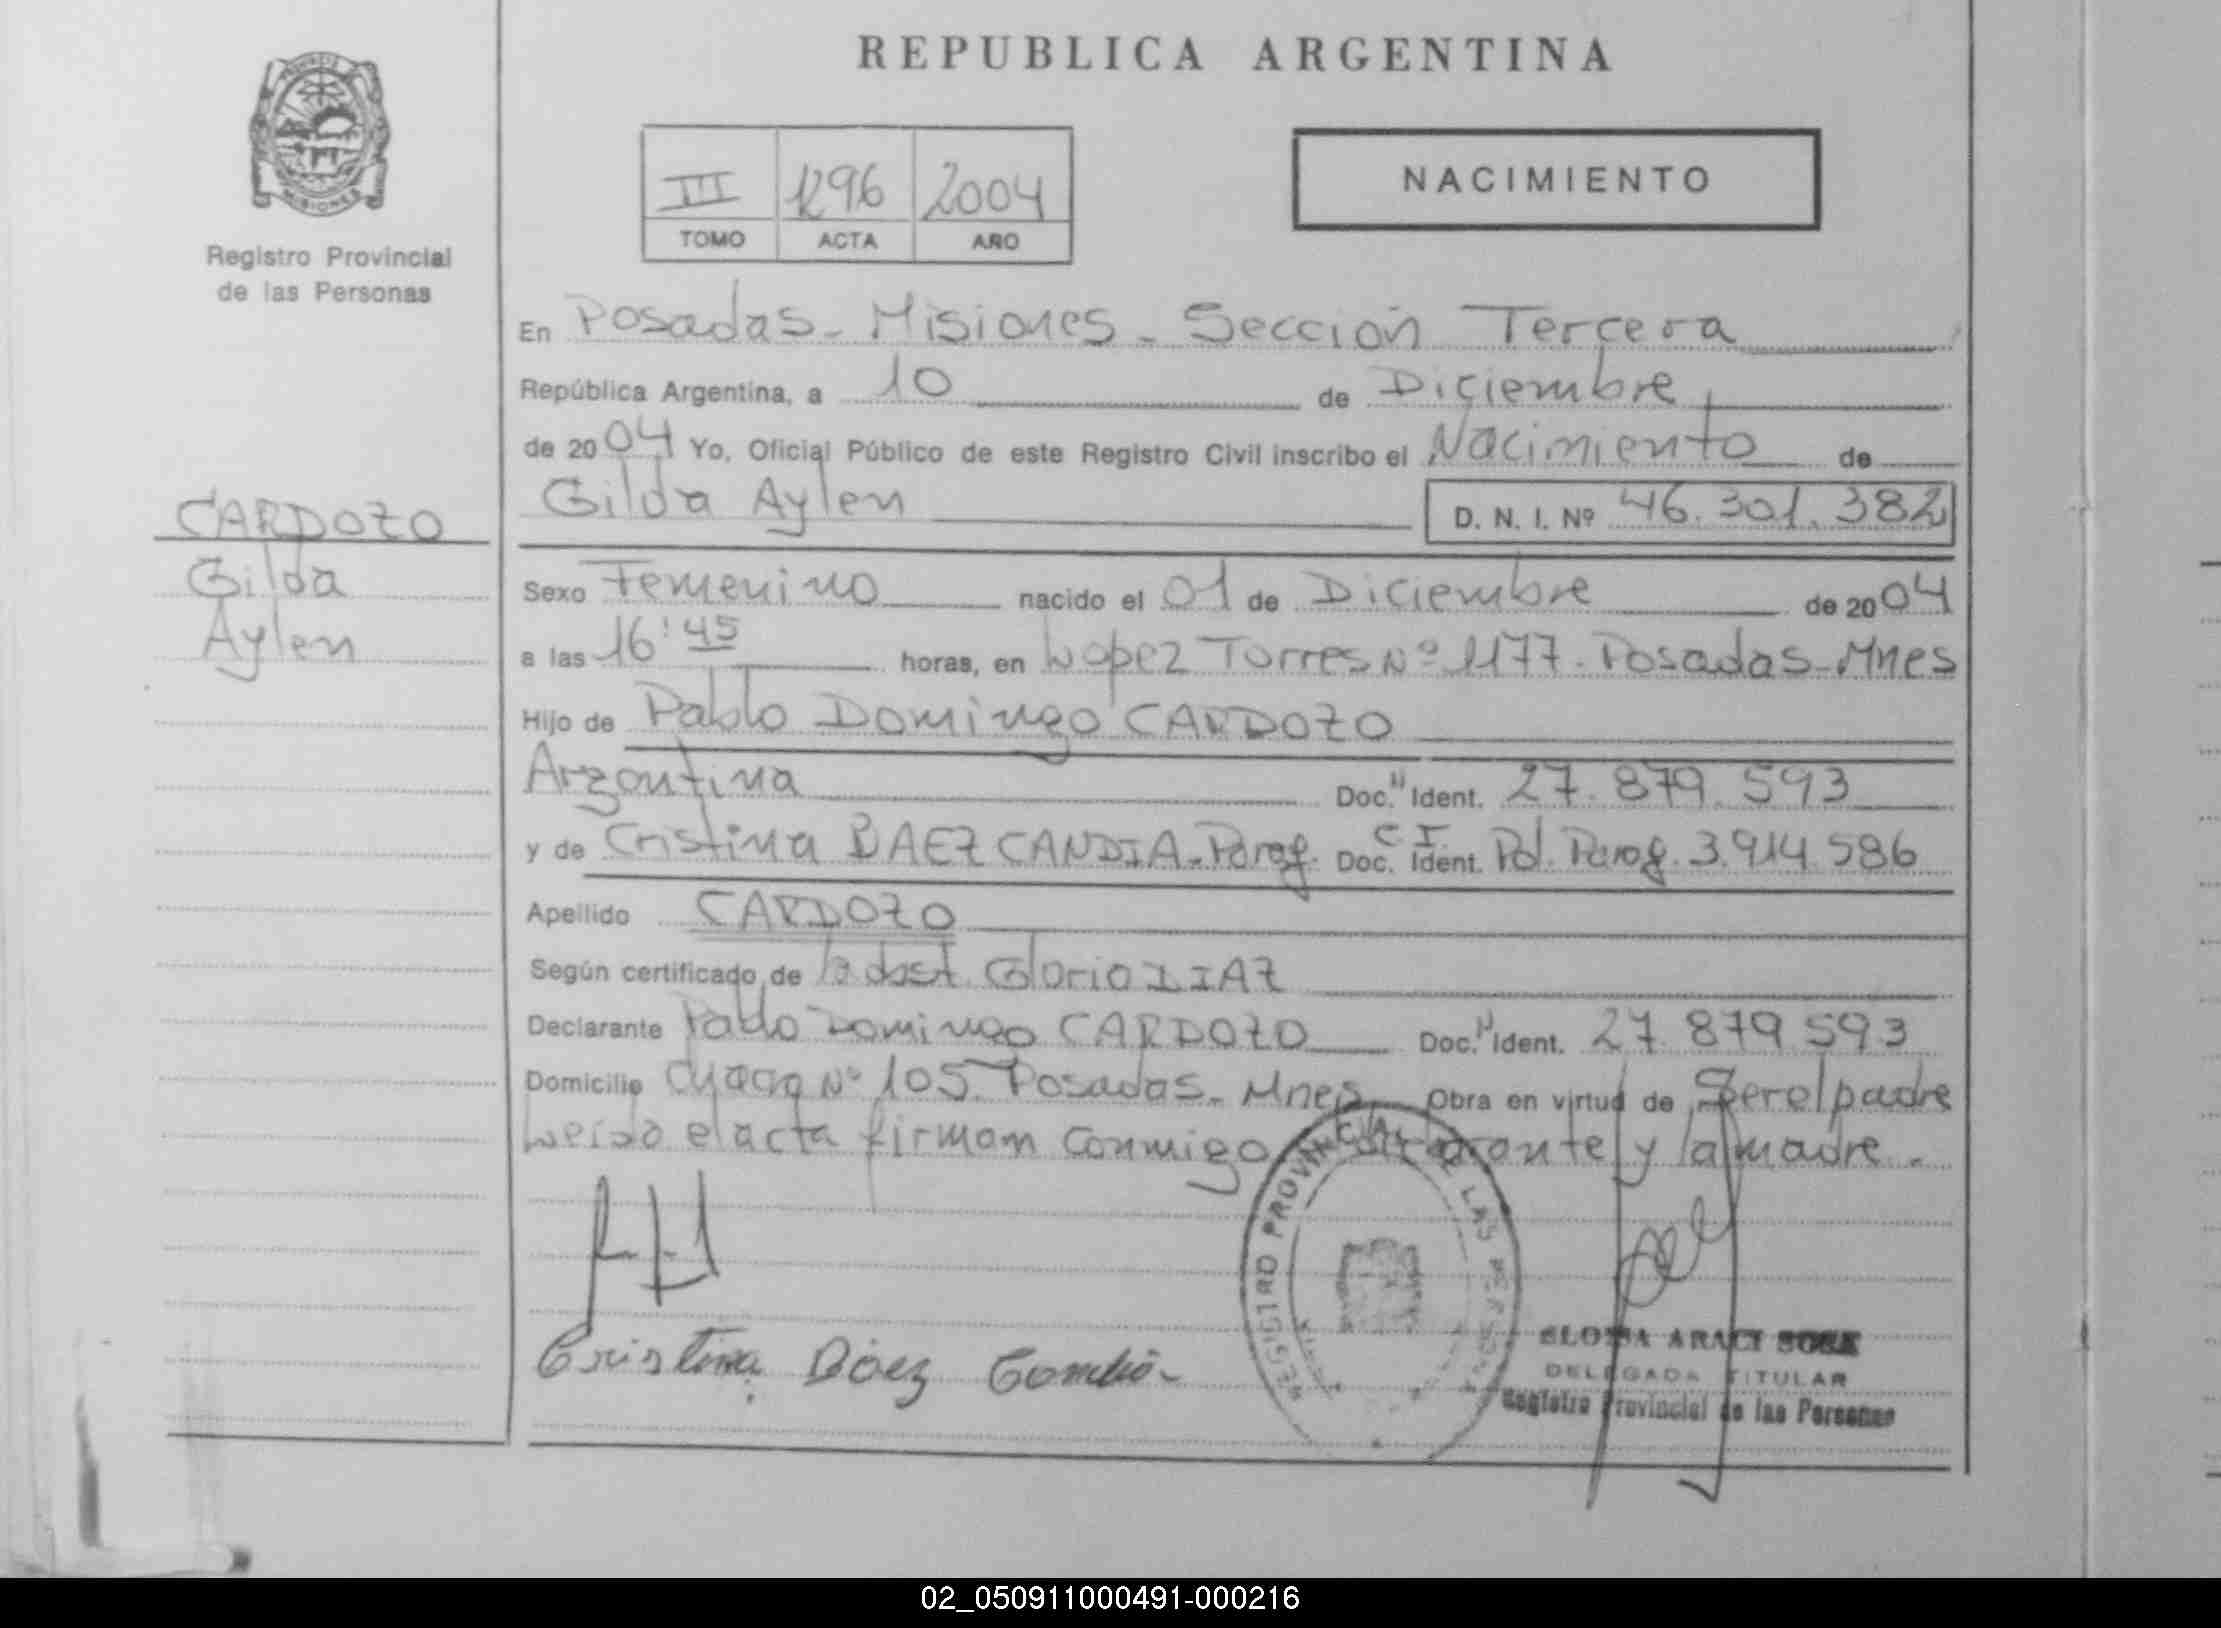 REPUBLICA ARGENTINA
PROVINCIA DE MISIONES
Registro Provincial
de las Personas
III 1296 2004
TOMO ACTA AÑO
NACIMIENTO
En Posadas - Misiones - Sección Tercera
República Argentina, a 10 de Diciembre
de 2004 Yo, Oficial Público de este Registro Civil inscribo el Nacimiento de
Gilda Aylen D. N. I. Nº 46.301.382
CARDOZO
Gilda
Aylen
Sexo Femenino nacido el 01 de Diciembre de 2004
a las 16:45 horas, en Lopez Torres Nº 1177. Posadas - Mnes
Hijo de Pablo Domingo CARDOZO
Argentina Doc. Ident. 27.879.593
y de Cristina BAEZ CANDIA - Parag. C.I. Doc. Ident. Pol. Parag. 3.914.586
Apellido CARDOZO
Según certificado de la obst. Gloria DIAZ
Declarante Pablo Domingo CARDOZO Doc. Ident. 27.879.593
Domicilio Chacra Nº 105 Posadas - Mnes Obra en virtud de Ser el padre
Leída el acta firman conmigo declarante y la madre.
Cristina Báez Candia
REGISTRO PROVINCIAL DE LAS PERSONAS
ELOISA ARACI SOSA
DELEGADA TITULAR
Registro Provincial de las Personas
02_050911000491-000216